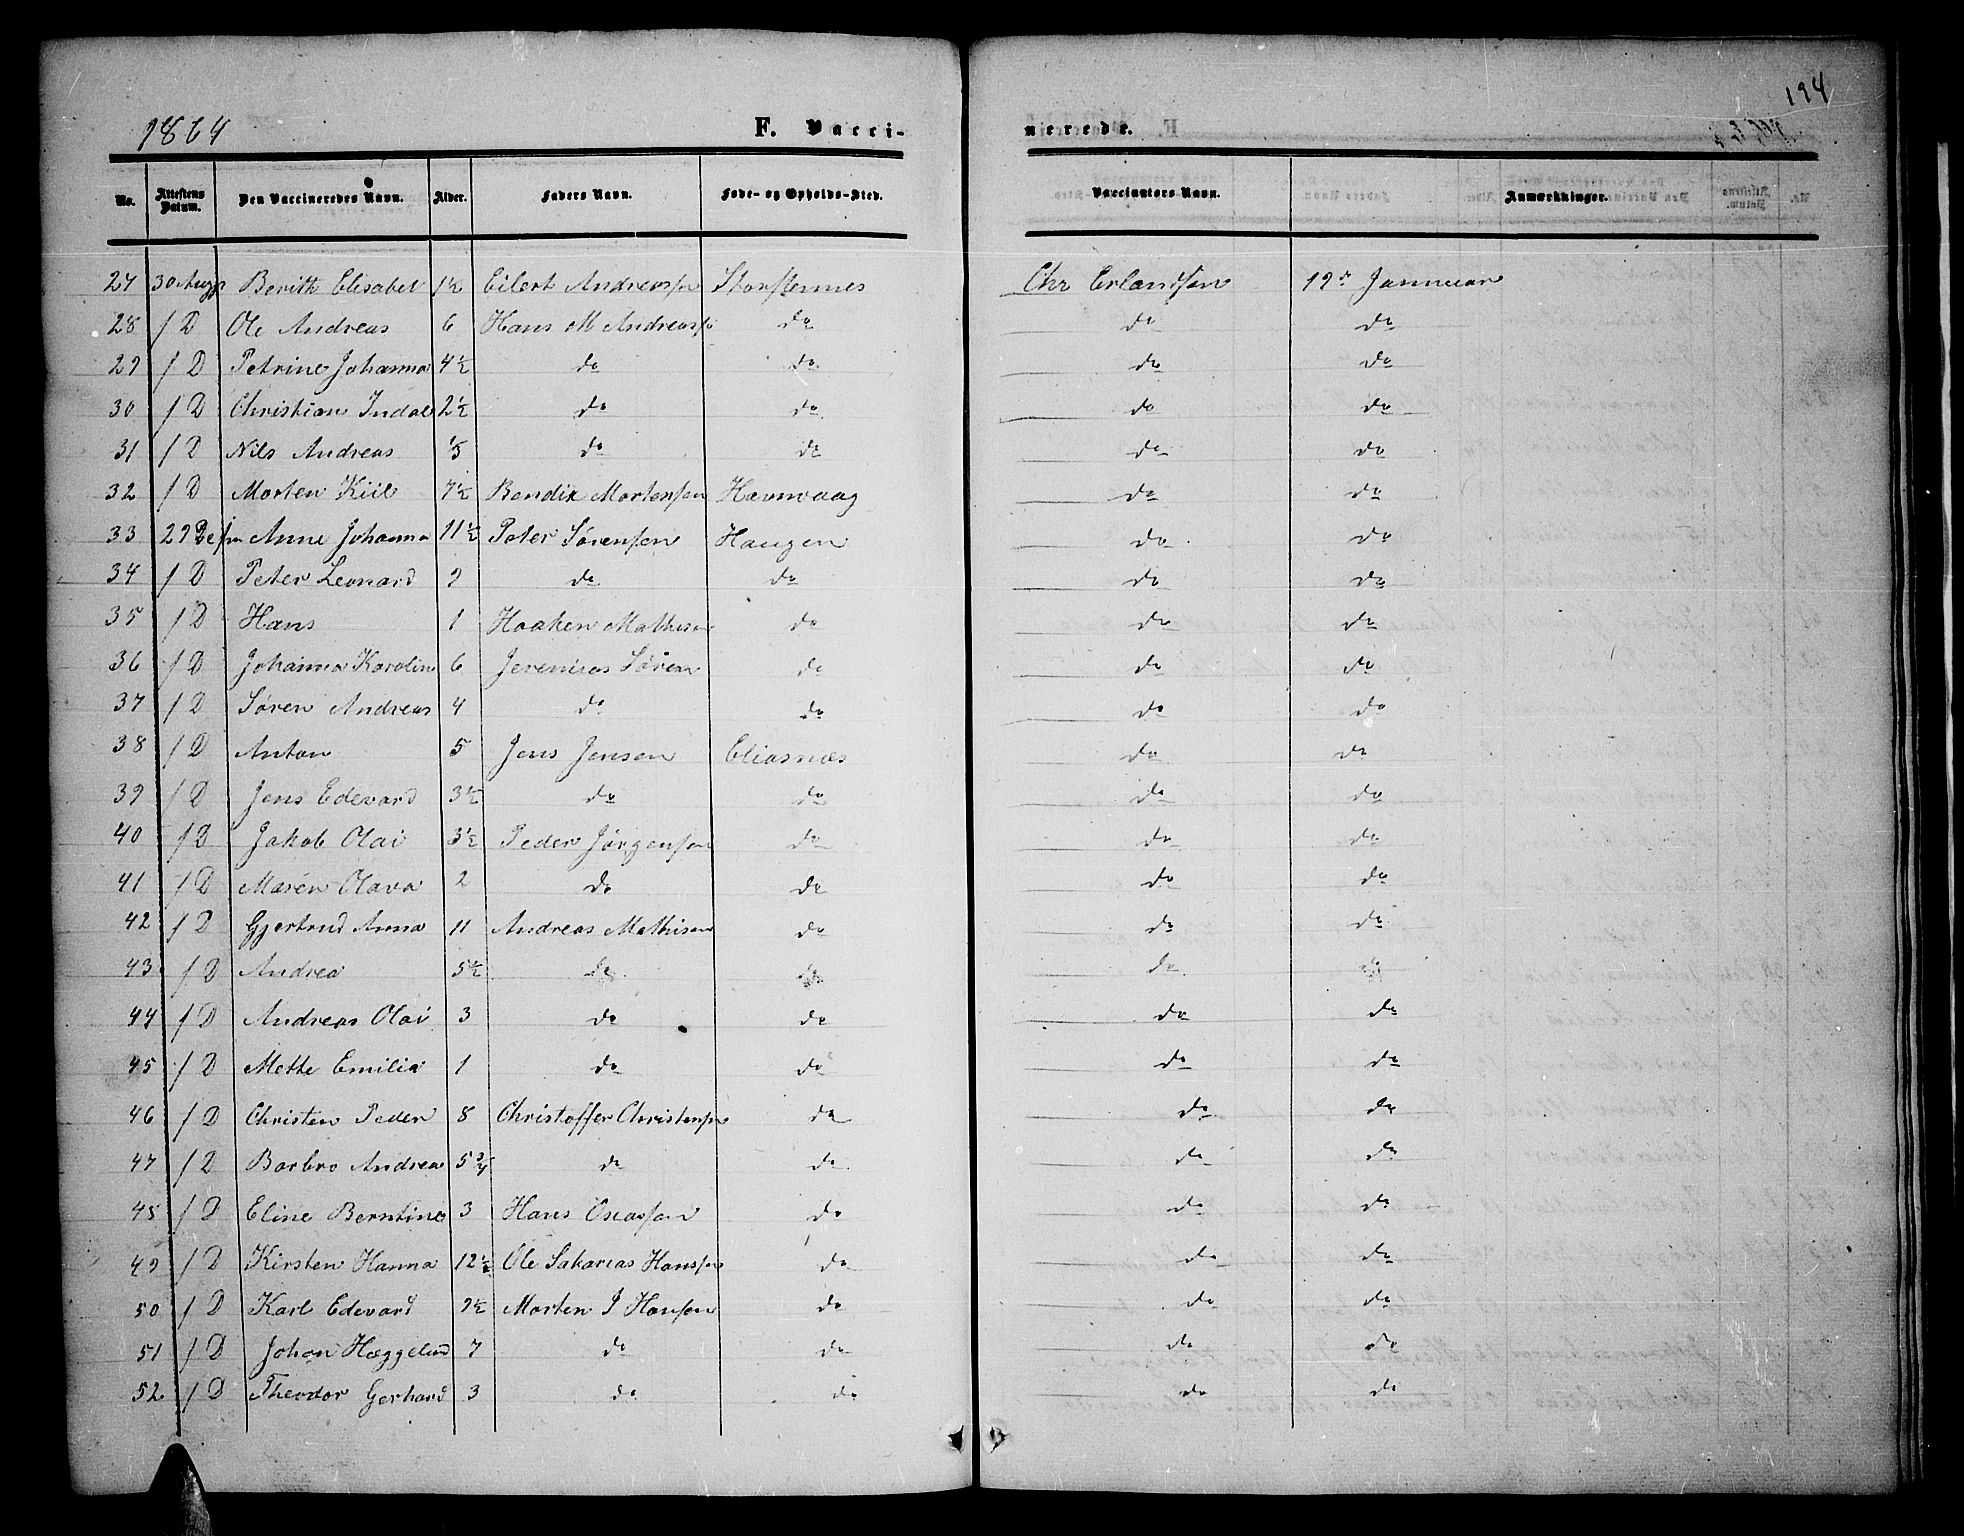 194
1864 F. Vacci- nerede.
No. Attestens Datum. Den Vaccineredes Navn. Alder. Faders Navn. Føde- og Opholds-Sted. Vaccinateurs Navn. Anmærkninger.
27 30 Berith Elisabet 1½ Eilert Andreassen Storstennes Chr Erlandsen 19de Januuar
28 / D Ole Andreas 6 Hans M Andreass do do do
29 / D Petrine Johanna 4½ do do do do
30 / D Christian Indal 2½ do do do do
31 / D Nils Andreas ⅓ do do do do
32 / D Morten Kiil 7½ Bendix Mortensen Havnvaag do do
33 29 Anne Johanna 11½ Peter Sørensen Haugen do do
34 / D Peter Leonard 9 do do do do
35 / D Hans 1 Haaken Mathisen do do do
36 / D Johanna Karolin 6 Jeremias Søren do do do
37 / D Søren Andreas 4 do do do do
38 / D Anton 5 Jens Jensen Eliasnæs do do
39 / D Jens Edevard 3½ do do do do
40 / D Jakob Olai 3½ Peder Jørgensen do do do
41 / D Maren Olava 2 do do do do
42 / D Gjertrud Anna 11 Andreas Mathisen do do do
43 / D Andrea 5½ do do do do
44 / D Andreas Olai 3 do do do do
45 / D Mette Emilia 1 do do do do
46 / D Christen Peder 8 Christoffer Christensen do do do
47 / D Barbro Andrea 5¾ do do do do
48 / D Eline Berntine 3 Hans Oneassen do do do
49 / D Kirsten Hanna 12½ Ole Sakarias Hanssen do do do
50 / D Karl Edevard 9½ Morten J Hansen do do do
51 / D Johan Hæggelund 7 do do do do
52 / D Theodor Gerhard 3 do do do do